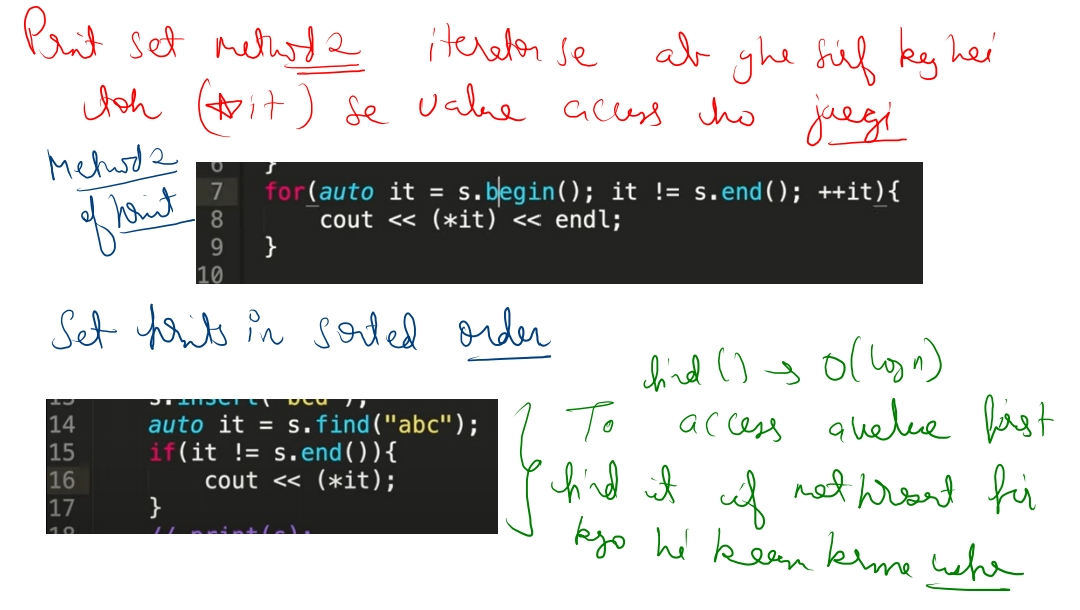 Print set method 2 iterator se ab yha sirf key hei
toh (*it) se value access ho jaegi
Method 2
of print
6 }
7 for(auto it = s.begin(); it != s.end(); ++it){
8 cout << (*it) << endl;
9 }
10
Set prints in sorted order
find() → O(log n)
13 s.insert("bcd");
14 auto it = s.find("abc");
15 if(it != s.end()){
16 cout << (*it);
17 }
18 // print(s);
To access a value first
find it if not present fir
kyo hi kaam krna uspe